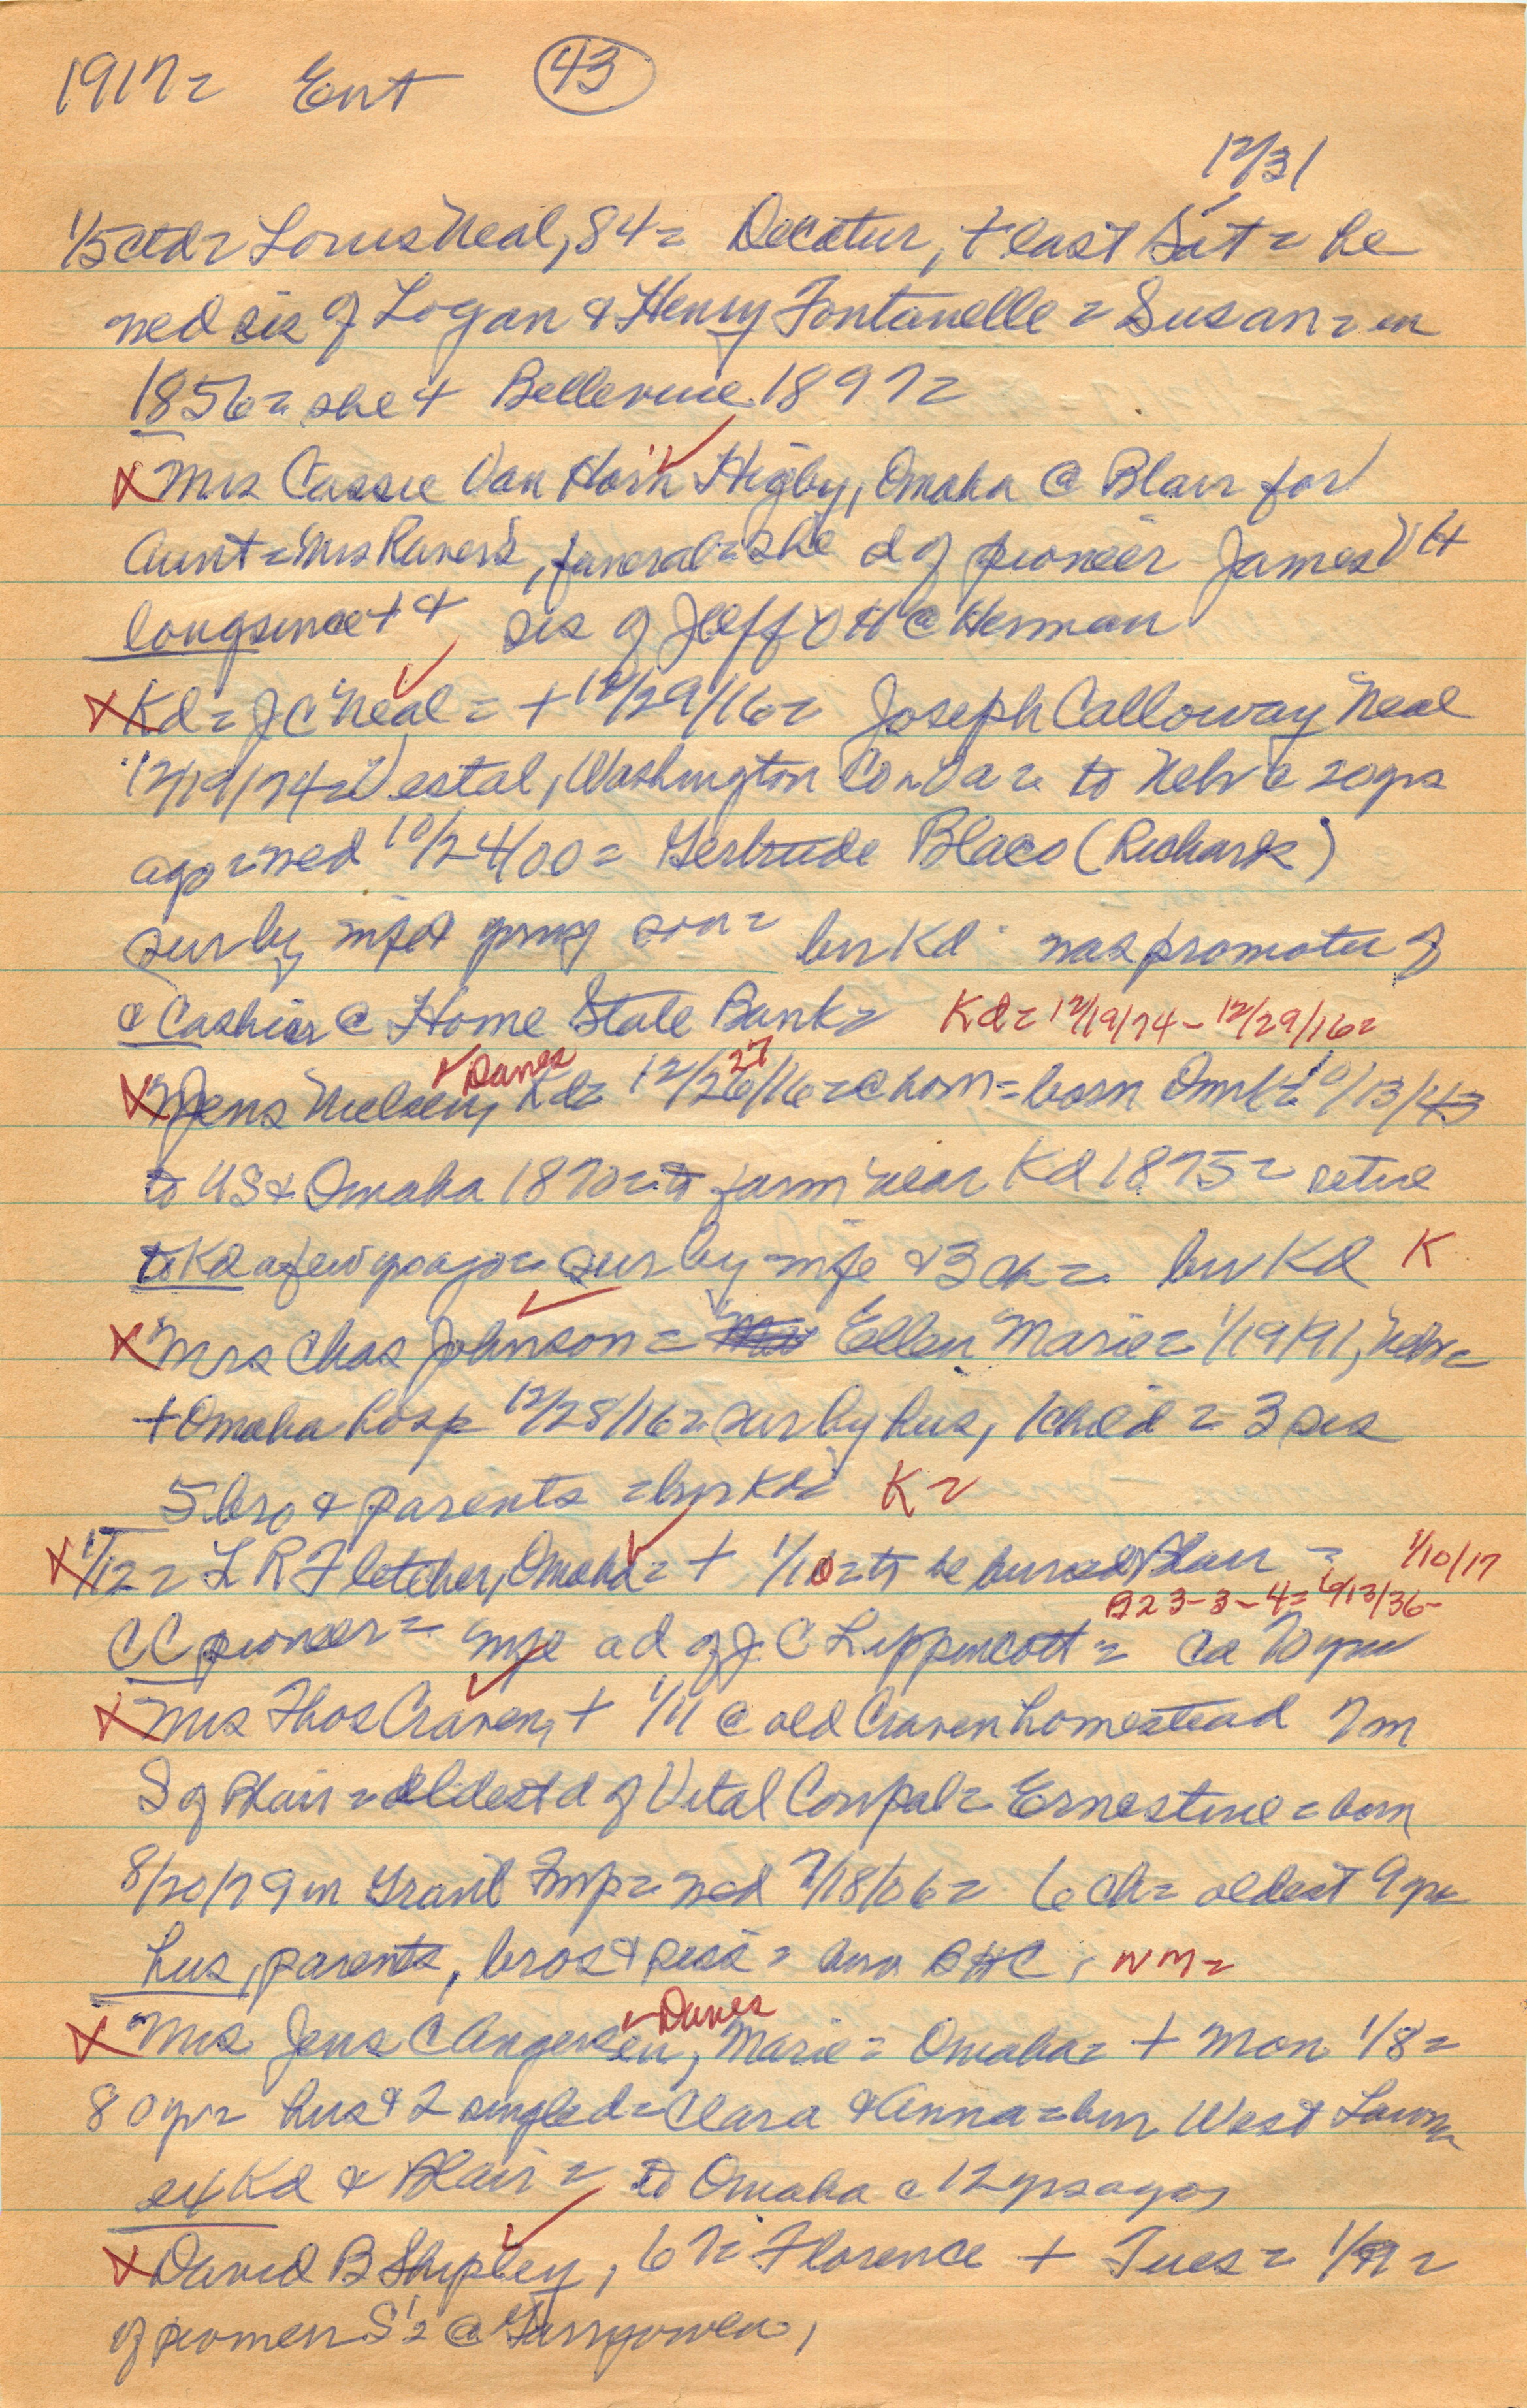 1917= Ent 43
12/31
1/5 ctd= Louis Neal, 84= Decatur, + last Sat= he
wed sis of Logan & Henry Fontanelle= Susan= in
1856= she + Bellevue 1897=
X Mrs Cassie Van Horn Higby, Omaha @ Blair for
Aunt= Mrs funeral= she d of pioneer James V H
longsince + & sis of Jeff V H @ Herman
X Kd= J C Neal= + 12/29/16= Joseph Calloway Neal
12/19/74= Vestal, Washington Co Va= to Nebr c 20yrs
ago= wed 10/24/00= Gertrude Blaco (Richards)
sur by wife & young son= bur Kd was promoter of
& Cashier @ Home State Bank= Kd= 12/19/74- 12/29/16=
✓ Danes 27
X Jens Nielsen, Kd= 12/26/16= @ hom= born Dmk= 10/13/43
to US & Omaha 1870= to farm near Kd 1875= retire
to Kd a few yrs ago= sur by wife & 3 ch= bur Kd K
X Mrs Chas Johnson= Ellen Marie= 1/19/91, Nebr=
+ Omaha hosp 12/28/16= sur by hus, 1 child= 3 sis
5 bro & parents= bur Kd= K=
X 1/12= L R Fletcher, Omaha= + 1/10= to be buried Blair= 1/10/17
B23-3-4= 6/13/36-
CC pioneer= wife a d of J. C Lippincott= ca 70 yrs
X Mrs Thos Craven, + 1/11 @ old Craven homestead 7m
S of Blair= eldest d of Vital Compal= Ernestine= born
8/20/79 in Grant Twp= wed 7/18/06= 6 ch= oldest 9 yrs
hus, parents, bros & siss= bur BHC, NM=
✓ Danes
X Mrs Jens C Angersen, Marie= Omaha= + Mon 1/8=
80yr= hus & 2 single d= Clara & Anna= bur West Lawn
ex Kd & Blair= to Omaha c 12 yrs ago,
X David B Shipley, 67= Florence + Tues= 1/9=
of pioneer S's @ Garryowen,